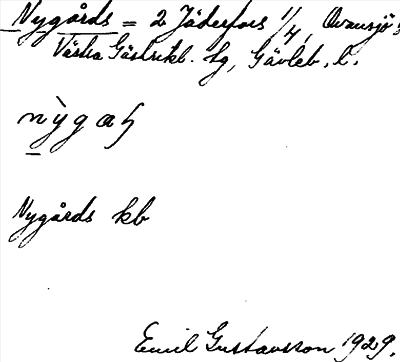 Nygårds = 2 Jäderfors 1/4, Ovansjö s
Västra Gästrikl. tg, Gävleb. l.
nỳgaꞕ
Nygårds kb
Emil Gustavsson 1929.